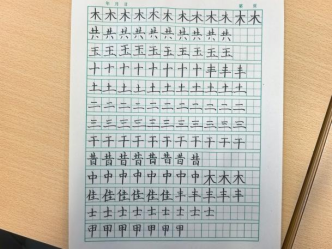 木木木木木木木木木木木
共共共共共共共共共
玉玉玉玉玉玉玉玉玉
十十十十十十十十丰丰
土土土土土土土土土土
二二二二二二二二二二
三三三三三三三三三三
干干干干干干干干干干
昔昔昔昔昔昔昔昔
中中中中中中中木木木
住住住住住住丰丰丰丰
士士士士士士士士
甲甲甲甲甲甲甲